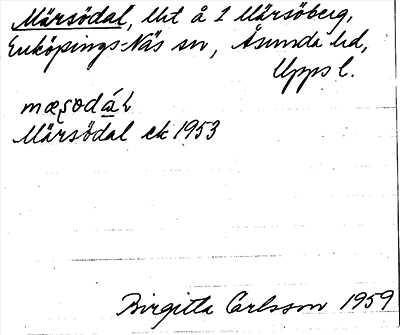 Märsödal, lht å 1 Märsöberg,
Enköpings-Näs sn, Åsunda hd,
Upps l.
Märsödal ek 1953
Birgitta Carlsson 1959